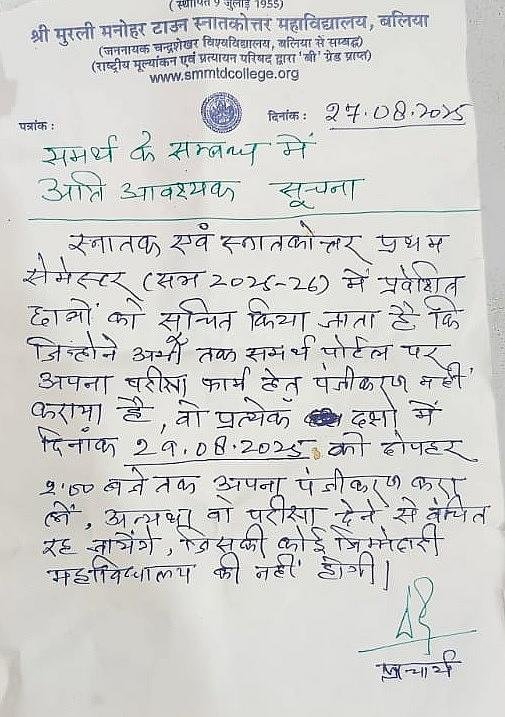 ( स्थापित 9 जुलाई 1955)
श्री मुरली मनोहर टाउन स्नातकोत्तर महाविद्यालय, बलिया
(जननायक चन्द्रशेखर विश्वविद्यालय, बलिया से सम्बद्ध)
(राष्ट्रीय मूल्यांकन एवं प्रत्यायन परिषद द्वारा 'बी' ग्रेड प्राप्त)
www.smmtdcollege.org
पत्रांक : दिनांक : 27.08.2025
समर्थ के सम्बन्ध में
अति आवश्यक सूचना
स्नातक एवं स्नातकोत्तर प्रथम
सेमेस्टर (सत्र 2025-26) में प्रवेशित
छात्रों को सूचित किया जाता है कि
जिन्होने अभी तक समर्थ पोर्टल पर
अपना परीक्षा फार्म हेतु पंजीकरण नहीं
कराया है, वो प्रत्येक दशा में
दिनांक 29.08.2025 को दोपहर
2:00 बजे तक अपना पंजीकरण करा
लें, अन्यथा वो परीक्षा देने से वंचित
रह जायेंगे, जिसकी कोई जिम्मेदारी
महाविद्यालय की नहीं होगी।
प्राचार्य